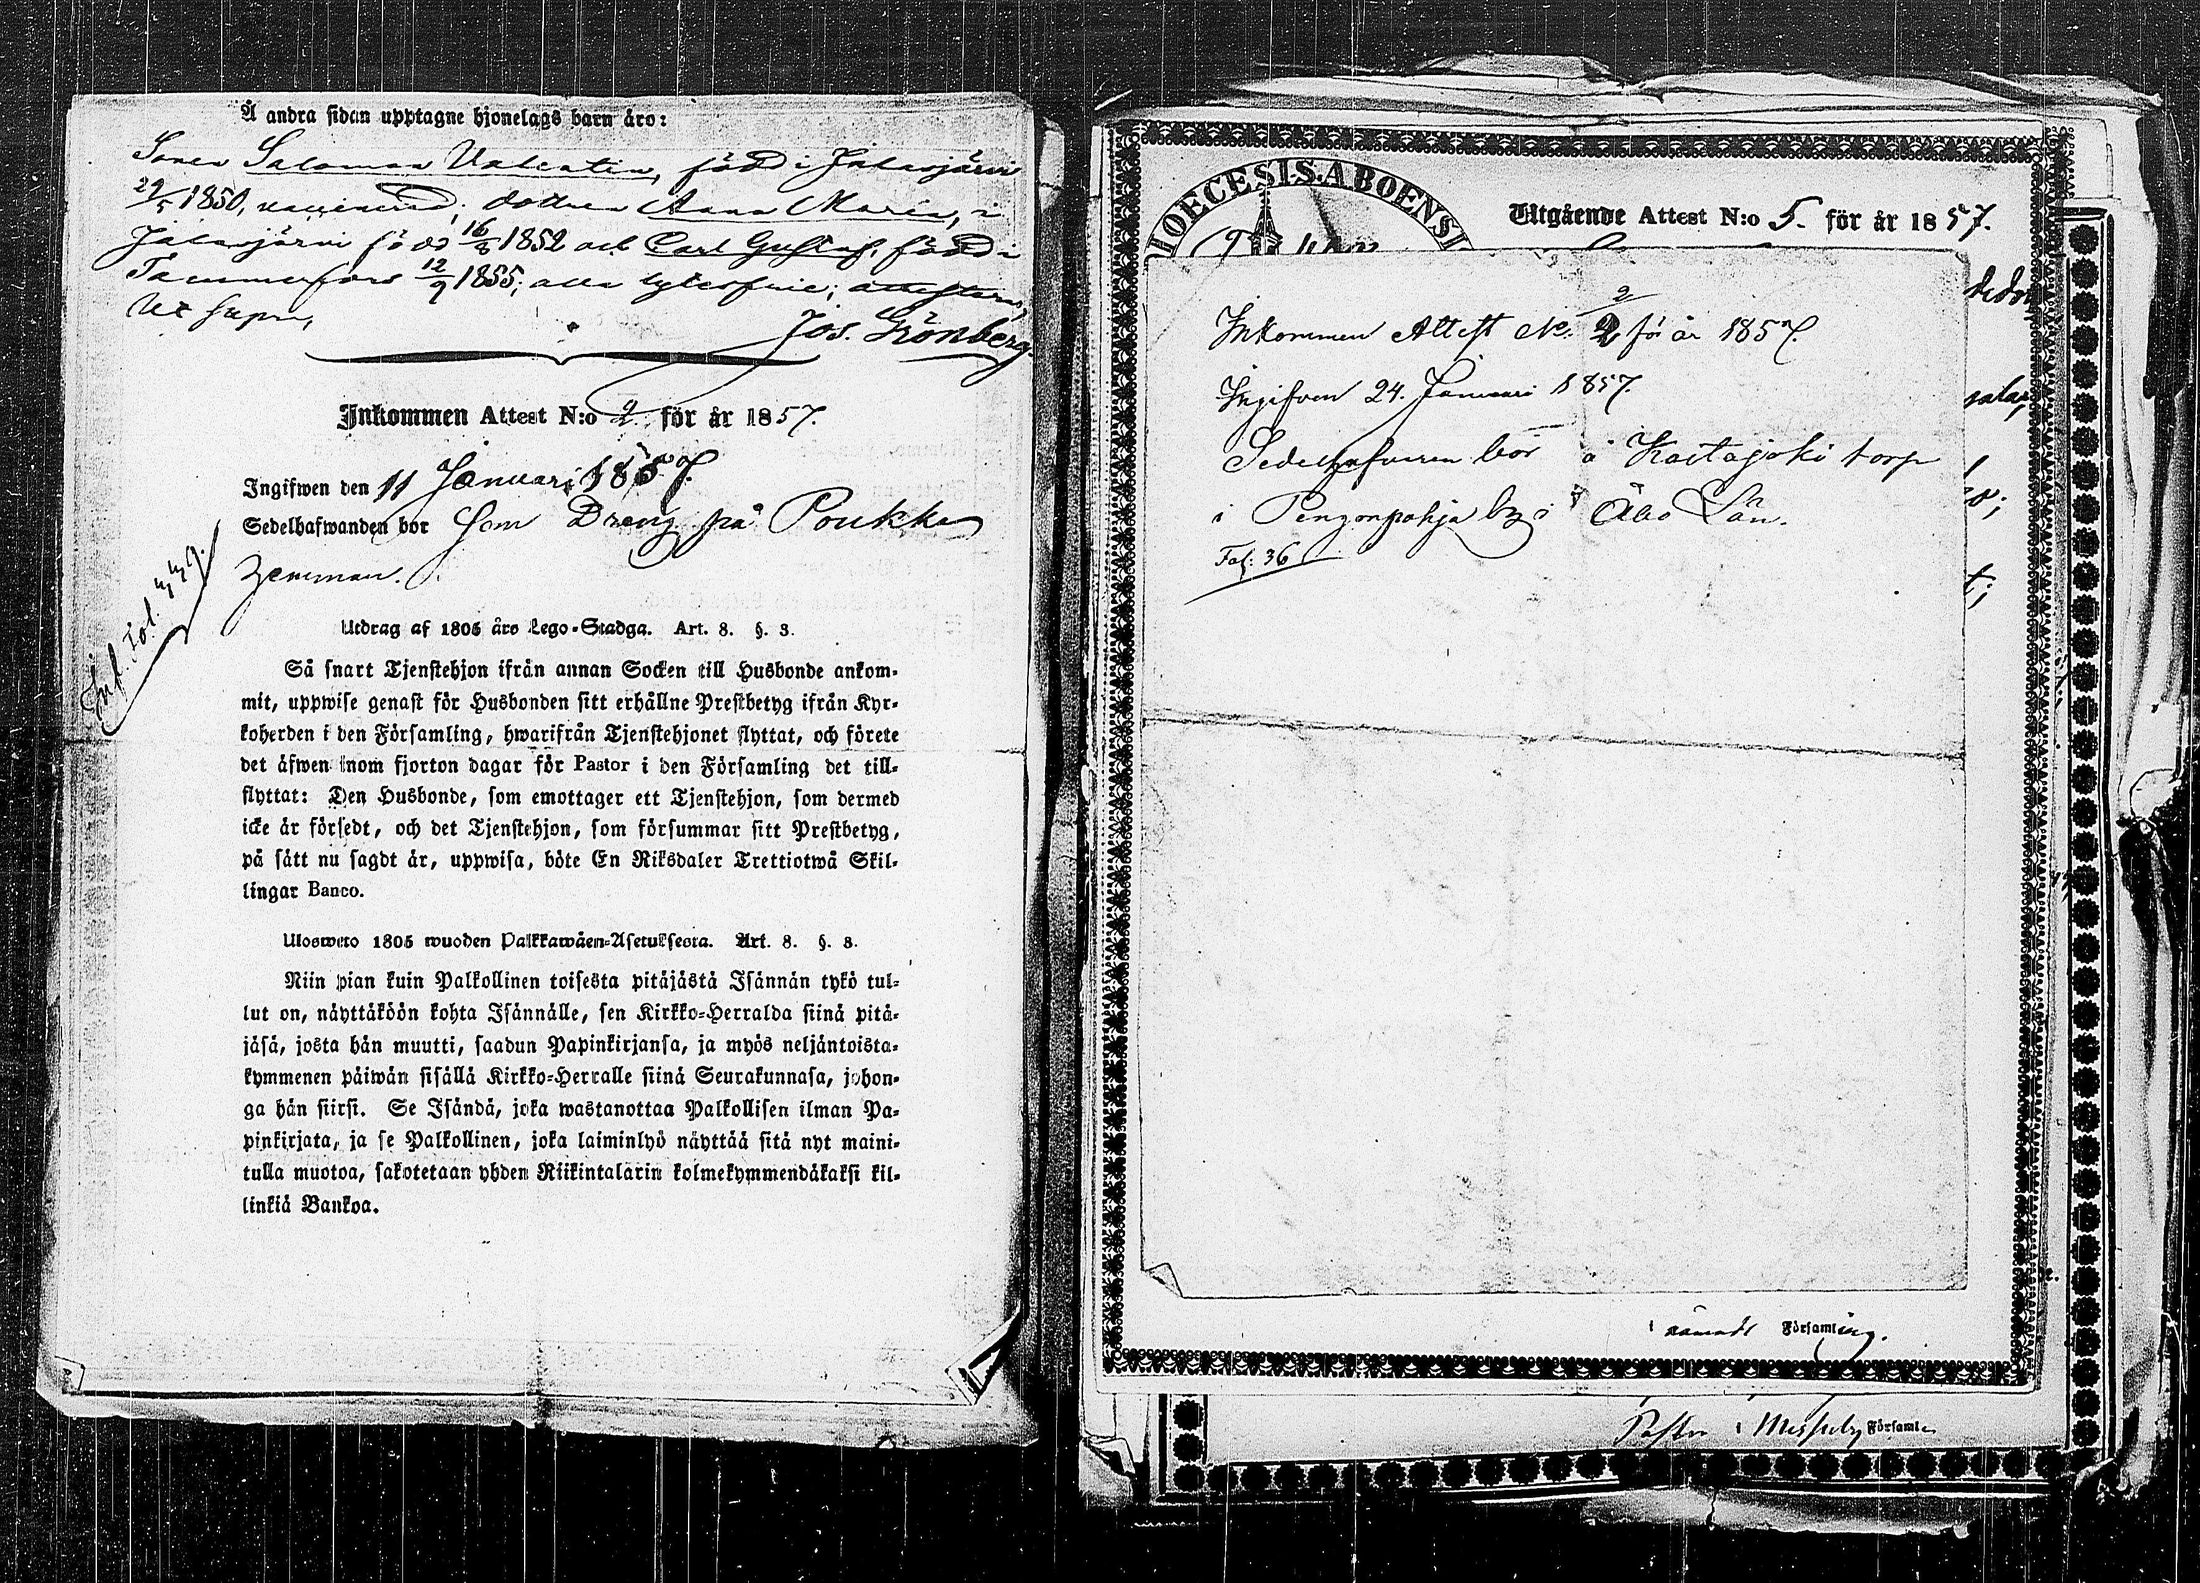 Å andra sidan upptagne hjonelags barn äro:
Sonen Salomon Valentin, född i Jalasjärvi
29/5 1850, vaccinerad; dottren Anna Maria, i
Jalasjärvi född 16/3 1852 och Carl Gustaf, född i
Tammerfors 12/9 1855; alla lytesfrie; attesteras,
Ut supra,
Jos. Grönberg.
Inkommen Attest N:o 2 för år 1857.
Ingifwen den 11 Januari 1857.
Sedelhafwanden bor som Dreng på Poukka
hemman.
Inf. Fol. 449.
Utdrag af 1805 års Lego-Stadga. Art. 8. §. 3.
Så snart Tjenstehjon ifrån annan Socken till Husbonde ankom-
mit, uppwise genast för Husbonden sitt erhållne Prestbetyg ifrån Kyr-
koherden i den Församling, hwarifrån Tjenstehjonet flyttat, och förete
det äfwen inom fjorton dagar för Pastor i den Församling det till-
flyttat: Den Husbonde, som emottager ett Tjenstehjon, som dermed
icke är försedt, och det Tjenstehjon, som försummar sitt Prestbetyg,
på sätt nu sagdt är, uppwisa, böte En Riksdaler Trettiotwå Skil-
lingar Banco.
Ulosweto 1805 wuoden Palkkawäen-Asetuksesta. Art. 8. §. 3.
Niin pian kuin Palkollinen toisesta pitäjästä Isännän tykö tul-
lut on, näyttäköön kohta Isännälle, sen Kirkko-Herralda siinä pitä-
jäsä, josta hän muutti, saadun Papinkirjansa, ja myös neljäntoista-
kymmenen päiwän sisällä Kirkko-Herralle siinä Seurakunnasa, johon-
ga hän siirsi. Se Isändä, joka wastanottaa Palkollisen ilman Pa-
pinkirjata, ja se Palkollinen, joka laiminlyö näyttää sitä nyt maini-
tulla muotoa, sakotetaan yhden Riikintalarin kolmekymmendäkaksi kil-
linkiä Bankoa.
DIOECESIS ABOENSI
Utgående Attest N:o 5. för år 1857.
2
Inkommen Attest No. 2 för år 1857.
Ingifven 24. Januari 1857.
Sedelhafvaren bor å Kaitajoki torp
i Pengonpohja by i Åbo Län.
Fol: 36
i nämnde Församling.
Pastor i Messuby Församl